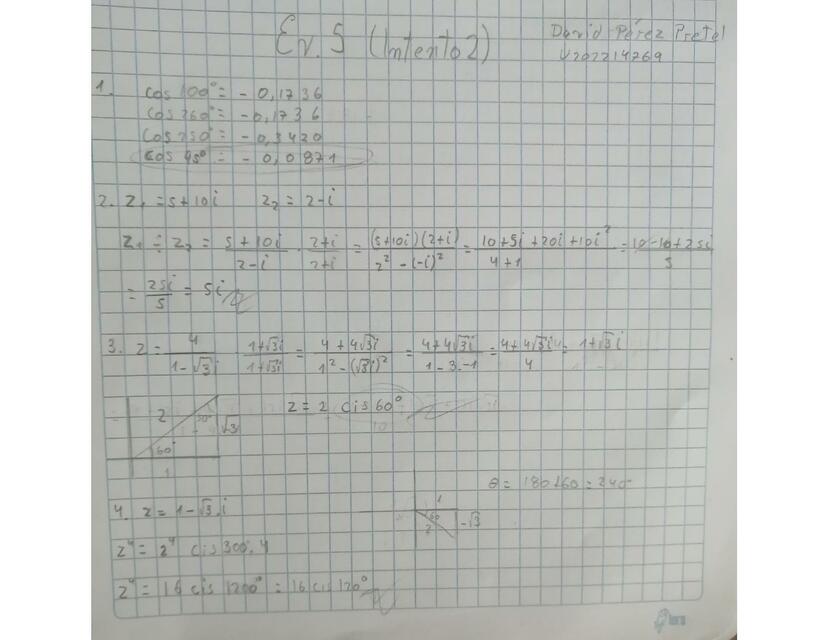 Ev. 5 (Intento 2)
David Pérez Pretel
U202214769
1.
cos 100° = - 0,1736
cos 260° = - 0,1736
cos 250° = - 0,3420
cos 95° = - 0,0871
2. z₁ = 5+10i z₂ = 2-i
z₁ ÷ z₂ = (5+10i)/(2-i) · (2+i)/(2+i) = (5+10i)(2+i)/(2² - (-i)²) = (10+5i+20i+10i²)/(4+1) = (10-10+25i)/5
= 25i/5 = 5i
3. z = 4/(1-√3i) · (1+√3i)/(1+√3i) = (4+4√3i)/(1² - (√3i)²) = (4+4√3i)/(1-3·-1) = (4+4√3i)/4 = 1+√3i
2 30° √3 60° 1
z = 2 cis 60°
θ = 180+60 = 240°
4. z = 1-√3 i
1 60 2 -√3
z⁴ = 2⁴ cis 300·4
z⁴ = 16 cis 1200° = 16 cis 120°